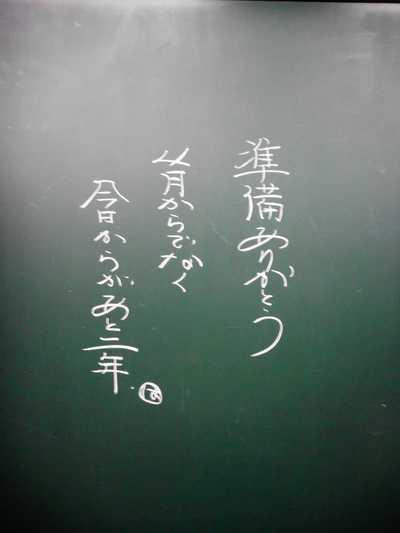 準備ありがとう
4月からでなく
今日からがあと二年.